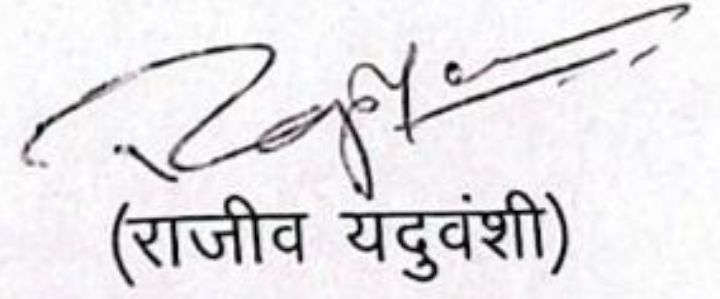 (राजीव यदुवंशी)